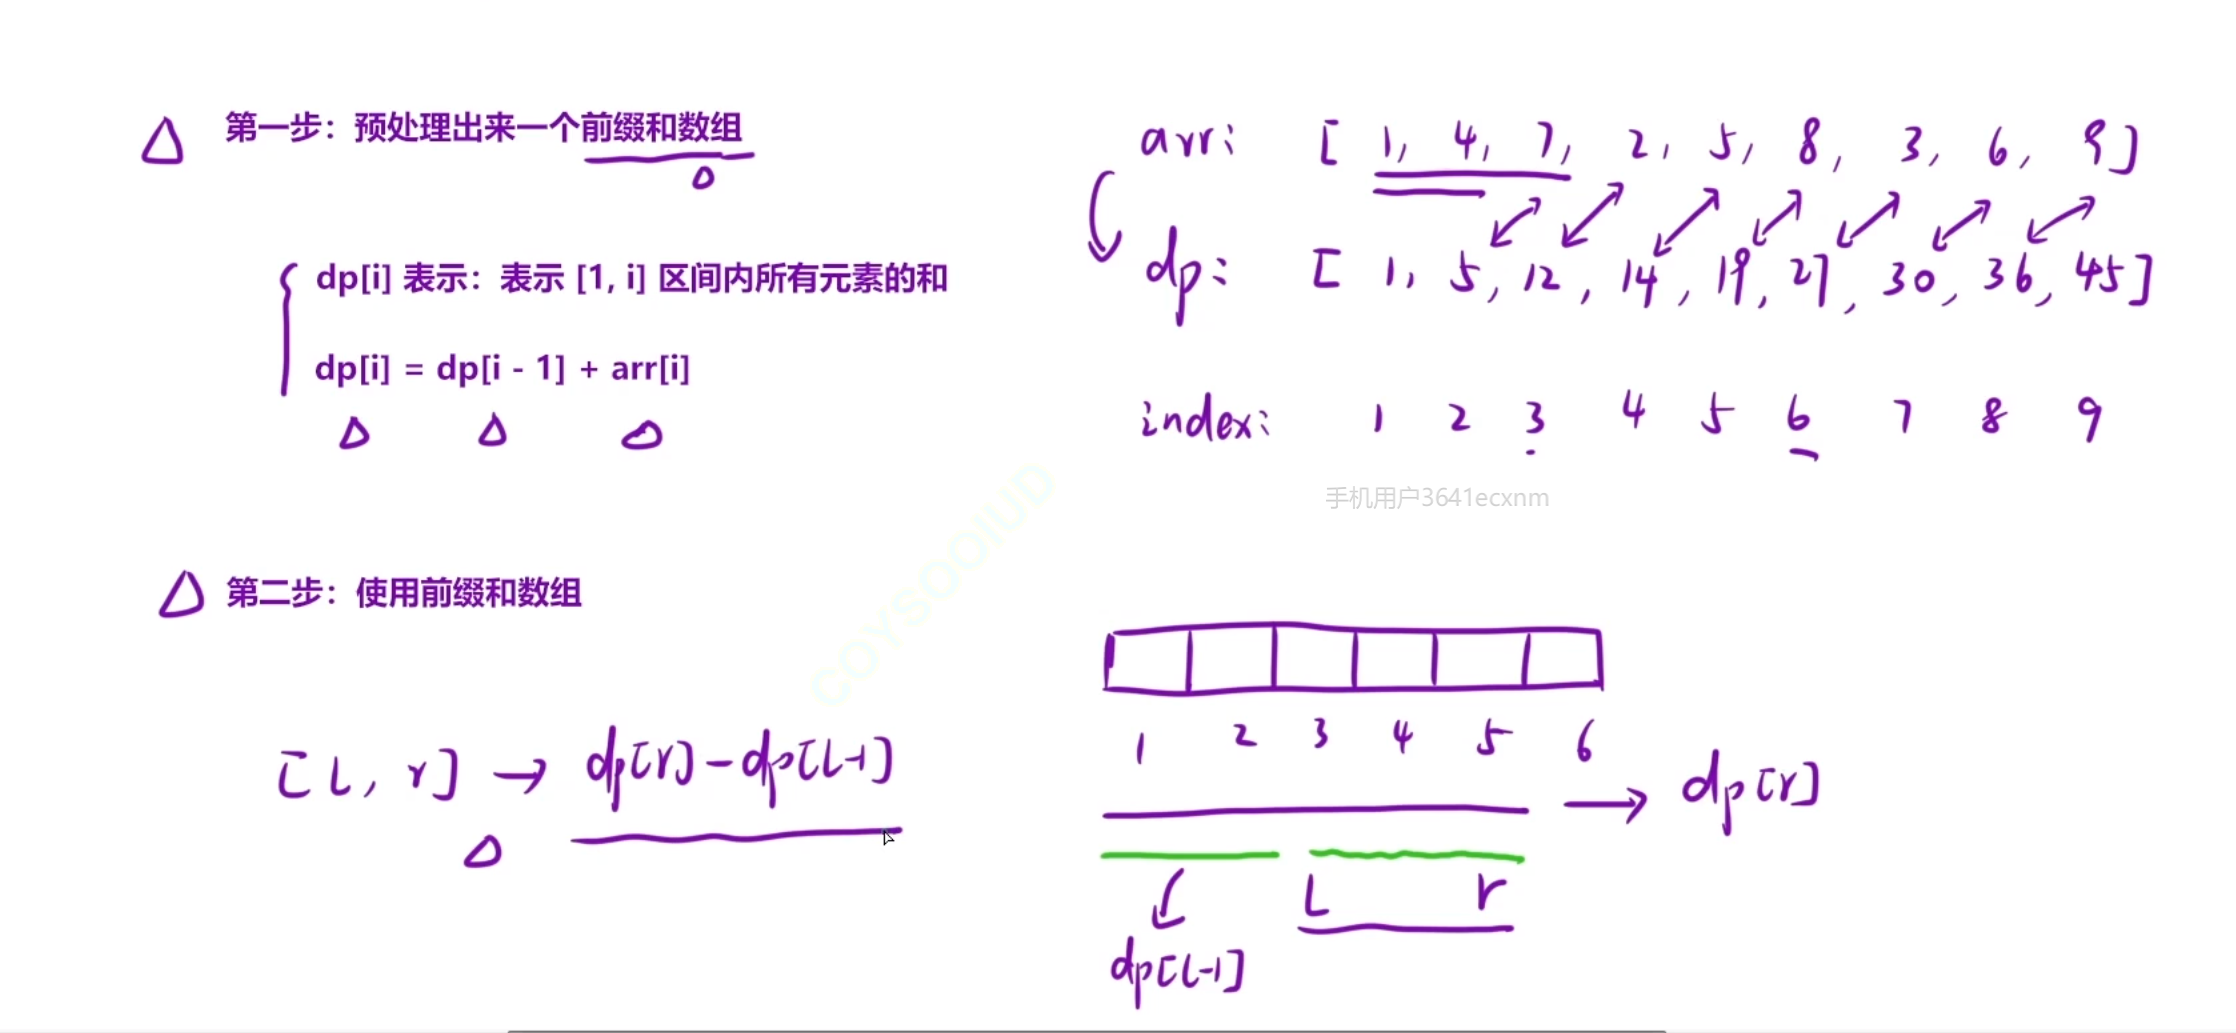 第一步：预处理出来一个前缀和数组
dp[i] 表示：表示 [1, i] 区间内所有元素的和
dp[i] = dp[i - 1] + arr[i]
arr: [ 1, 4, 7, 2, 5, 8, 3, 6, 9 ]
dp: [ 1, 5, 12, 14, 19, 27, 30, 36, 45 ]
index: 1 2 3 4 5 6 7 8 9
手机用户3641ecxnm
COYSOOIUD
第二步：使用前缀和数组
[ l, r ] → dp[r] - dp[l-1]
1 2 3 4 5 6
→ dp[r]
l r
dp[l-1]